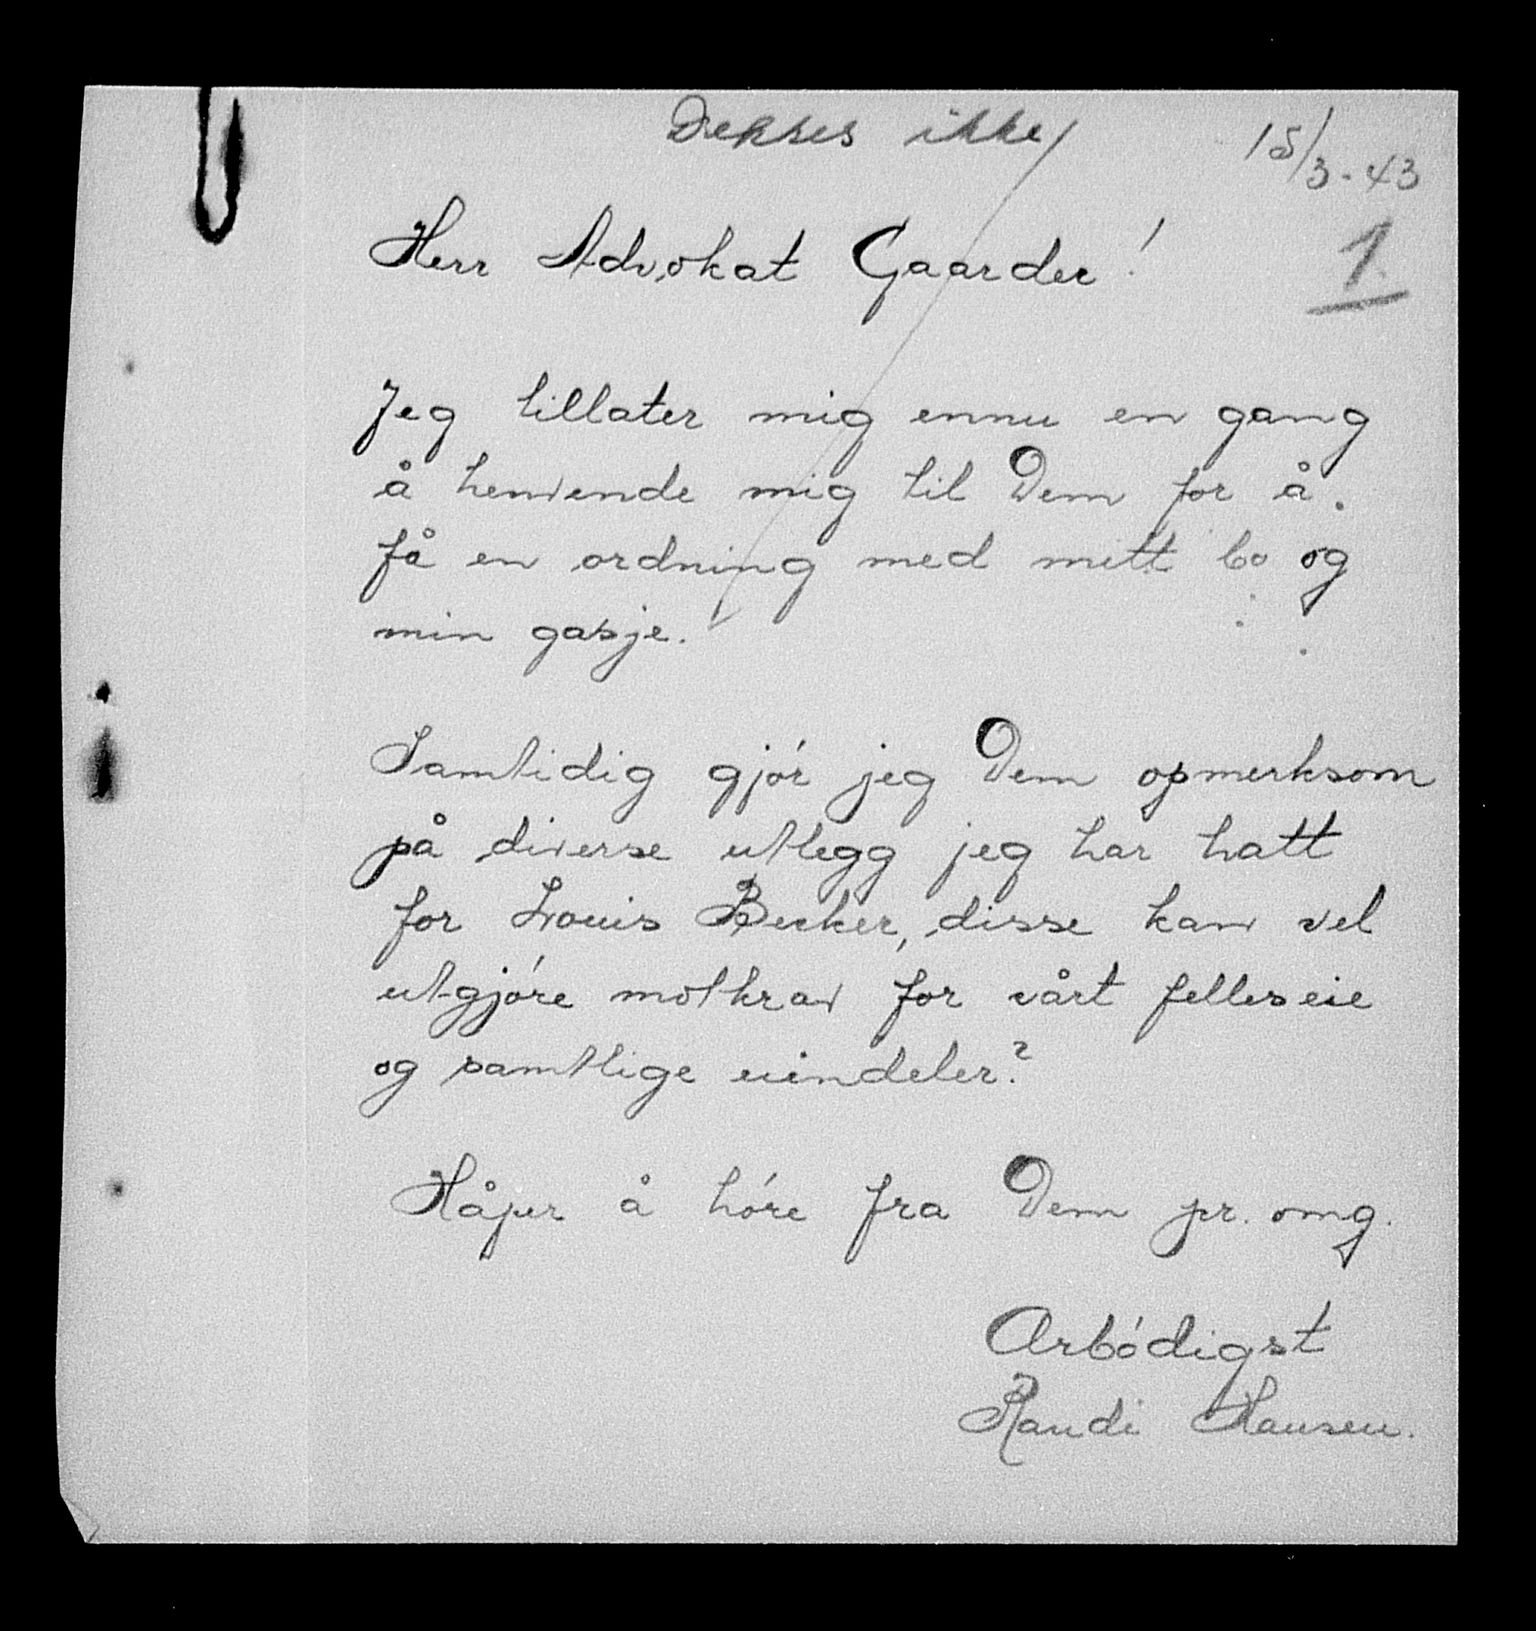 Dekkes ikke
15/3-43
1.
Herr Advokat Gaarder!
Jeg tillater mig ennu en gang
å henvende mig til Dem for å
få en ordning med mitt bo og
min gasje.
Samtidig gjór jeg Dem opmerksom
på diverse utlegg jeg har hatt
for Louis Becker, disse kan vel
utgjóre motkrav for vårt felleseie
og samtlige eiendeler?
Håper å hóre fra Dem pr. omg.
Arbódigst
Randi Hansen.